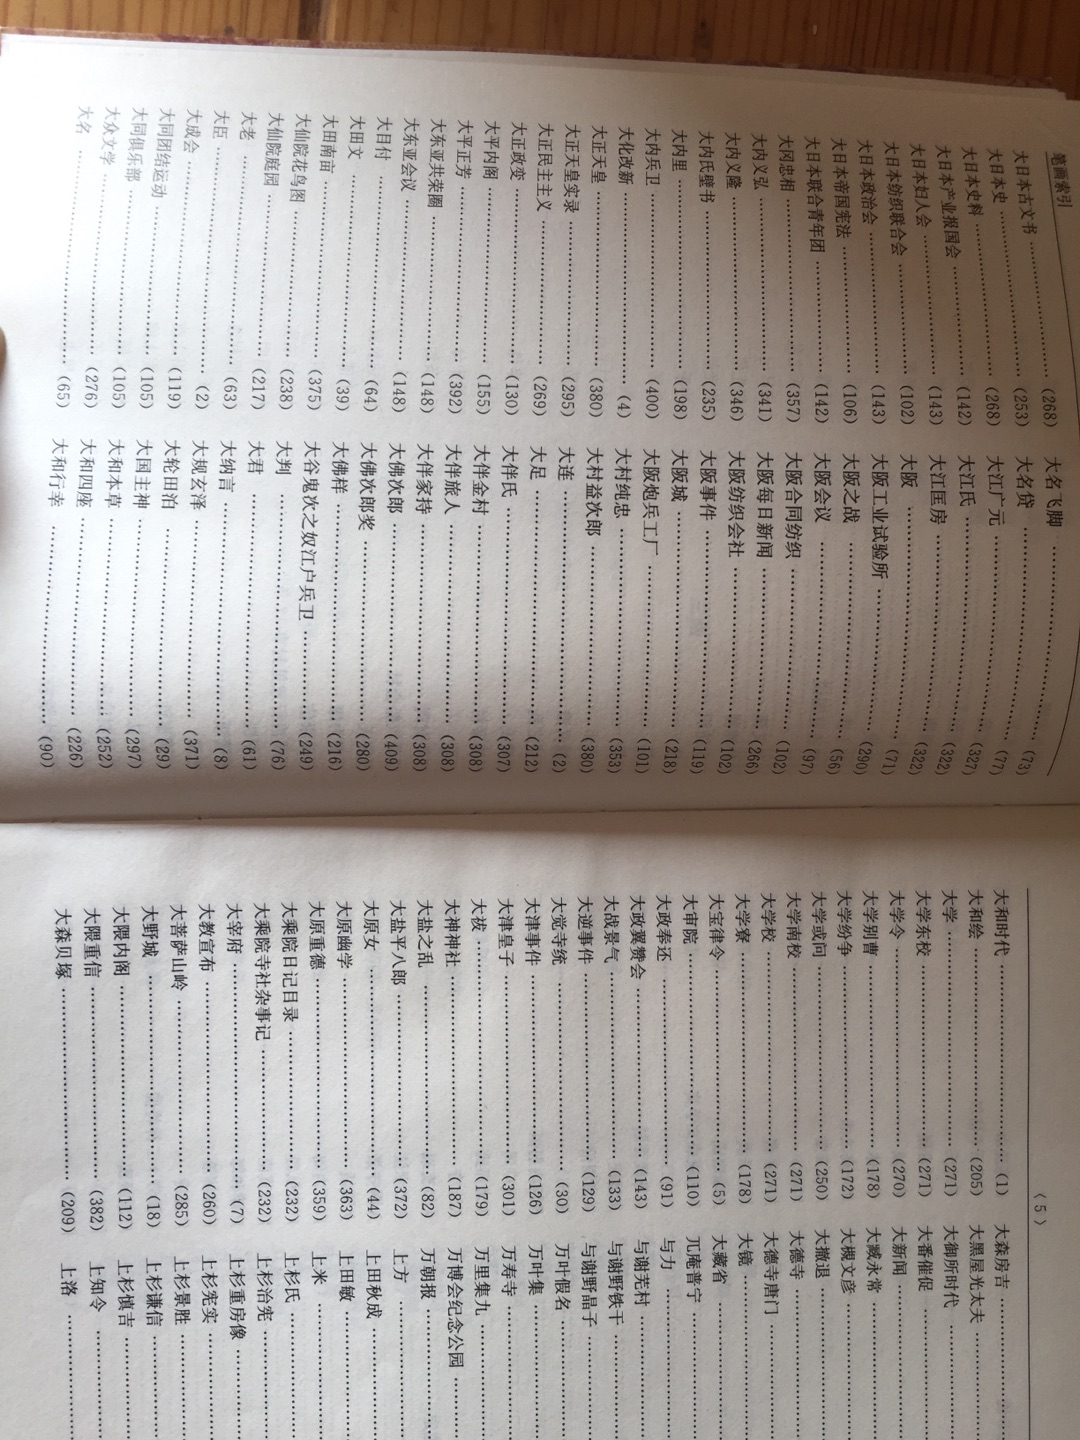 笔画索引
大日本古文书 …………………… (268)
大日本史 …………………… (253)
大日本史料 …………………… (268)
大日本产业报国会 …………………… (142)
大日本妇人会 …………………… (143)
大日本纺织联合会 …………………… (102)
大日本政治会 …………………… (143)
大日本帝国宪法 …………………… (106)
大日本联合青年团 …………………… (142)
大冈忠相 …………………… (357)
大内义弘 …………………… (341)
大内义隆 …………………… (346)
大内氏壁书 …………………… (235)
大内里 …………………… (198)
大内兵卫 …………………… (400)
大化改新 …………………… (4)
大正天皇 …………………… (380)
大正天皇实录 …………………… (295)
大正民主主义 …………………… (269)
大正政变 …………………… (130)
大平内阁 …………………… (155)
大平正芳 …………………… (392)
大东亚共荣圈 …………………… (148)
大东亚会议 …………………… (148)
大目付 …………………… (64)
大田文 …………………… (39)
大田南亩 …………………… (375)
大仙院花鸟图 …………………… (238)
大仙院庭园 …………………… (217)
大老 …………………… (63)
大臣 …………………… (2)
大成会 …………………… (119)
大同团结运动 …………………… (105)
大同俱乐部 …………………… (105)
大众文学 …………………… (276)
大名 …………………… (65)
大名飞脚 …………………… (73)
大名贷 …………………… (77)
大江广元 …………………… (327)
大江氏 …………………… (322)
大江匡房 …………………… (322)
大阪 …………………… (71)
大阪工业试验所 …………………… (290)
大阪之战 …………………… (56)
大阪会议 …………………… (97)
大阪合同纺织 …………………… (102)
大阪每日新闻 …………………… (266)
大阪纺织会社 …………………… (102)
大阪事件 …………………… (119)
大阪城 …………………… (218)
大阪炮兵工厂 …………………… (101)
大村纯忠 …………………… (353)
大村益次郎 …………………… (380)
大连 …………………… (2)
大足 …………………… (212)
大伴氏 …………………… (307)
大伴金村 …………………… (308)
大伴旅人 …………………… (308)
大伴家持 …………………… (308)
大佛次郎 …………………… (409)
大佛次郎奖 …………………… (280)
大佛样 …………………… (216)
大谷鬼次之奴江户兵卫 …………………… (249)
大判 …………………… (76)
大君 …………………… (61)
大纳言 …………………… (8)
大规玄泽 …………………… (371)
大轮田泊 …………………… (29)
大国主神 …………………… (297)
大和本草 …………………… (252)
大和四座 …………………… (226)
大和行幸 …………………… (90)
(5)
大和时代 …………………… (1)
大和绘 …………………… (205)
大学 …………………… (271)
大学东校 …………………… (271)
大学令 …………………… (270)
大学别曹 …………………… (178)
大学纷争 …………………… (172)
大学或问 …………………… (250)
大学南校 …………………… (271)
大学校 …………………… (271)
大学寮 …………………… (178)
大宝律令 …………………… (5)
大审院 …………………… (110)
大政奉还 …………………… (91)
大政翼赞会 …………………… (143)
大战景气 …………………… (133)
大逆事件 …………………… (129)
大觉寺统 …………………… (30)
大津事件 …………………… (126)
大津皇子 …………………… (301)
大祓 …………………… (179)
大神神社 …………………… (187)
大盐之乱 …………………… (82)
大盐平八郎 …………………… (372)
大原女 …………………… (44)
大原幽学 …………………… (363)
大原重德 …………………… (359)
大乘院日记目录 …………………… (232)
大乘院寺社杂事记 …………………… (232)
大宰府 …………………… (7)
大教宣布 …………………… (260)
大菩萨山岭 …………………… (285)
大野城 …………………… (18)
大隈内阁 …………………… (112)
大隈重信 …………………… (382)
大森贝塚 …………………… (209)
大森房吉 ……………
大黑屋光太夫 ……………
大御所时代 ……………
大番催促 ……………
大新闻 ……………
大臧永常 ……………
大槻文彦 ……………
大撤退 ……………
大德寺 ……………
大德寺唐门 ……………
大镜 ……………
大藏省 ……………
兀庵普宁 ……………
与力 ……………
与谢芜村 ……………
与谢野铁干 ……………
与谢野晶子 ……………
万叶假名 ……………
万叶集 ……………
万寿寺 ……………
万里集九 ……………
万博会纪念公园 ……………
万朝报 ……………
上方 ……………
上田秋成 ……………
上田敏 ……………
上米 ……………
上杉氏 ……………
上杉治宪 ……………
上杉重房像 ……………
上杉宪实 ……………
上杉景胜 ……………
上杉谦信 ……………
上杉慎吉 ……………
上知令 ……………
上洛 ……………